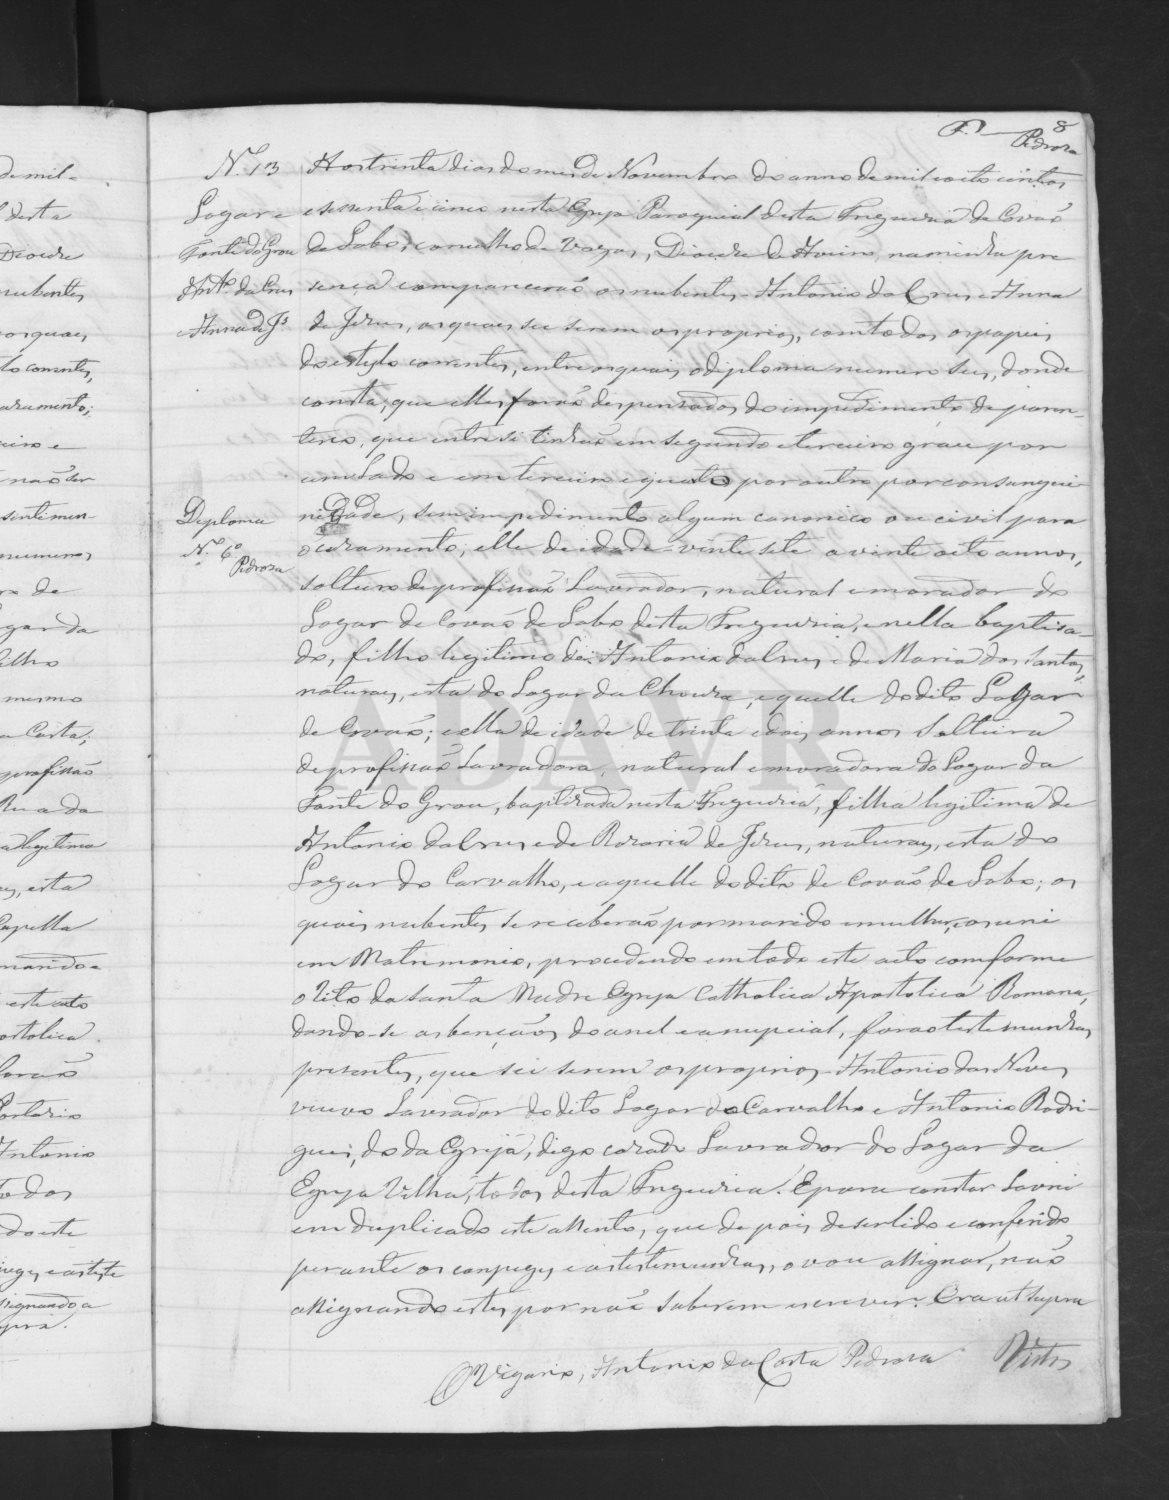 8
Pedroza
N.º 13
Logar e
Fonte do Grou
Ant.º da Crus
e Anna de J.s
Aos trinta dias do mes de Novembro do anno de mil e oito centos
e sessenta e cinco nesta Egreja Paroquial desta Freguezia de Covão
do Lobo, concelho de Vagos, Diocese de Aveiro, na minha pre
sença comparecerão os nubentes Antonio da Crus e Anna
de Jesus, os quaes sei serem os proprios, com todos os papeis
do estylo correntes, entre os quais o diploma numero seis, donde
consta, que elles forão despensados do impedimento de paren-
tesco, que entre si tinhão em segundo e terceiro grau por
um lado e em terceiro e quarto por outro por consangui-
nidade, sem impedimento algum canonico ou civil para
o cazamento; elle de idade vinte sete a vinte oito annos,
solteiro de profissão Lavrador, natural e morador do
Logar de Covão do Lobo desta Freguezia, e nella baptisa-
do, filho legitimo de Antonio da Crus e de Maria dos Santos,
naturaes, esta do Logar da Choura, e aquelle do dito Logar
de Covão; e ella de idade de trinta e dois annos Solteira
de profissão Lavradora, natural e moradora do Logar da
Fonte do Grou, baptizada nesta Freguezia, filha legitima de
Antonio da Crus e de Rozaria de Jesus, naturaes, esta do
Logar do Carvalho, e aquelle do dito de Covão do Lobo; os
quais nubentes se receberão por marido e mulher, e os uni
em Matrimonio, procedendo em todo este acto comforme
o Rito da Santa Madre Egreja Catholica Apostolica Romana,
dando-se as benções do anel e a nupcial, forão testemunhas
presentes, que sei serem os proprios Antonio das Neves
viuvo Lavrador do dito Logar do Carvalho e Antonio Rodri-
gues, do da Egreja, digo cazado Lavrador do Logar da
Egreja Velha, todos desta Freguezia. E para constar Lavrei
em duplicado este assento, que depois de ser lido e conferido
perante os conjuges e as testemunhas, o vou assignar, não
assignando estes por não saberem escrever. Era ut supra
O Vigario, Antonio da Costa Pedroza
Visto
Deploma
N.º 6º
Pedroza
ADAVR
de mil e
desta
Diocese
nubentes
os quaes
correntes,
cazamento;
não ser
numeros
de
filho
mesmo
Costa;
profissão
Rua da
legitima
esta
Capella
marido e
este acto
Antonio
todos
assignando a